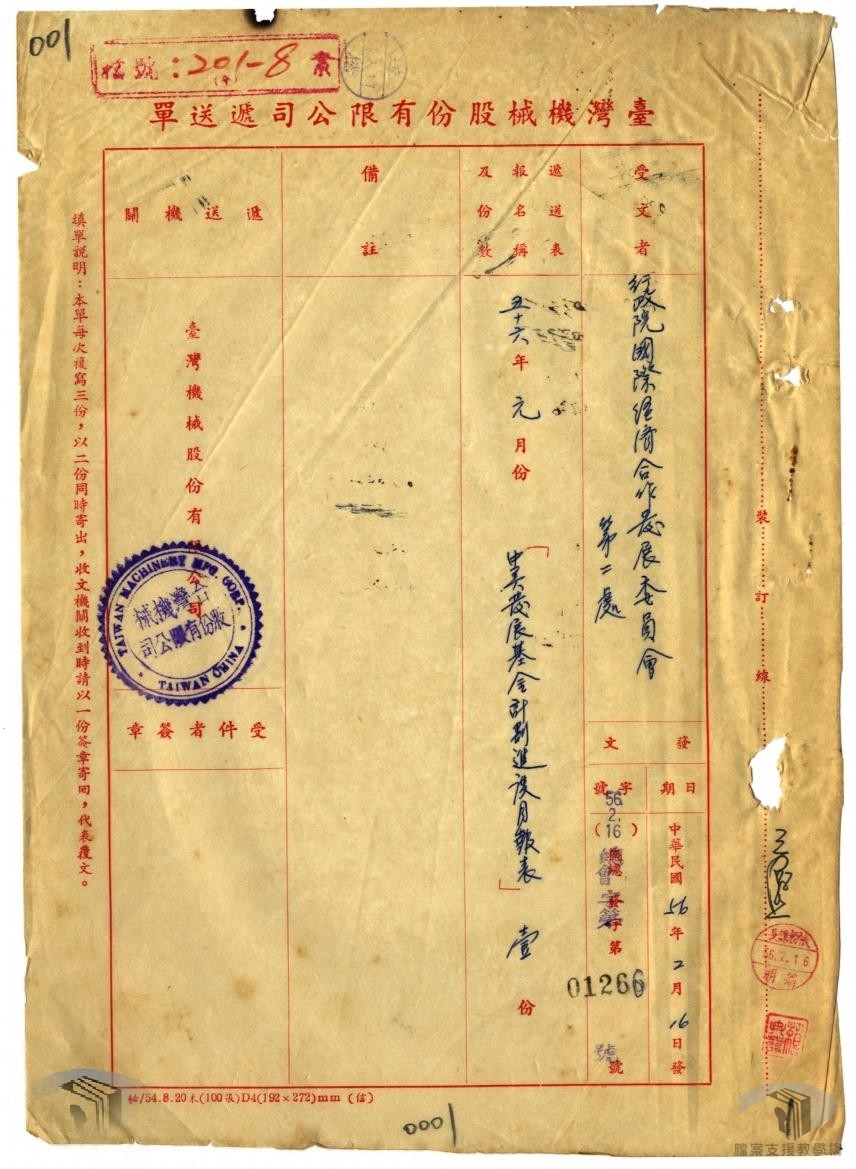 001
檔號：201-8 業
臺灣機械股份有限公司遞送單
受文者
行政院國際經濟合作發展委員會
第二處
遞送表
報名稱
及份數
五十六年元月份
「中美發展基金計劃進度月報表」壹份
備註
遞送機關
臺灣機械股份有限公司
TAIWAN MACHINERY MFG. CORP.
台灣機械
股份有限公司
TAIWAN CHINA
受件者簽章
發文
日期
中華民國56年2月16日發
字號
56.2.16
(56)
總發字第
01266
號
裝訂線
56.2.16
填單說明：本單每次複寫三份，以二份同時寄出，收文機關收到時請以一份簽章寄回，代表覆文。
54.8.20本(100張)D4(192×272)mm (信)
0001
檔案支援教學網